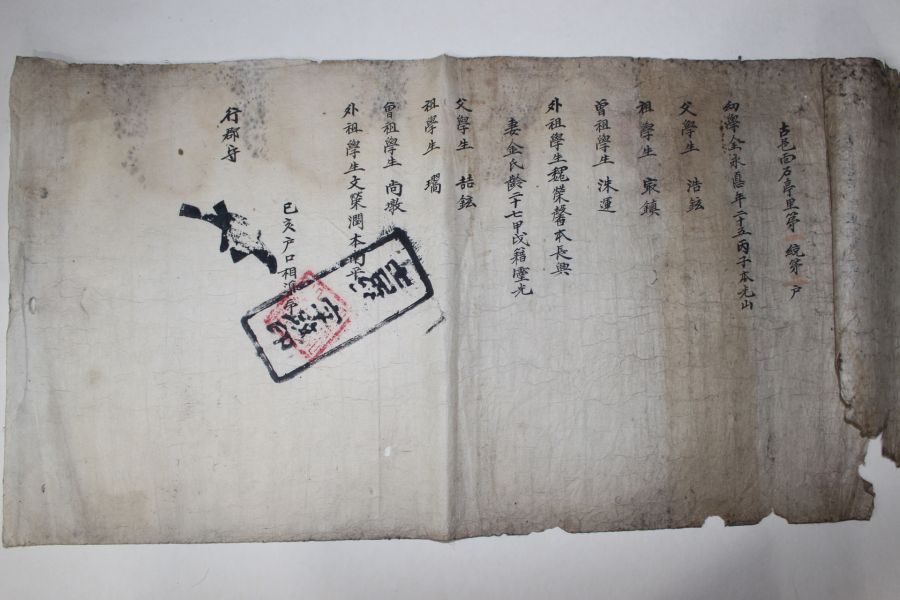 古邑面 亭里第一統第一戶
幼學金永 年二十五丙子本光山
父學生 浩鉉
祖學生 鎮
曾祖學生 洙運
外祖學生魏榮馨本長興
妻金氏齡二十七甲戌籍靈光
父學生 喆鉉
祖學生 璿
曾祖學生 尚墩
外祖學生文榮潤本南平
己亥戶口相
行郡守